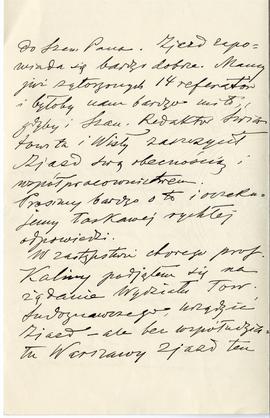 do Szan. Pana. Zjazd zapo-
wiada się bardzo dobrze. Mamy
już zgłoszonych 14 referatów
i byłoby nam bardzo miło,
gdyby i Szan. Redaktor Świa-
towita i Wisły zaszczycił
Zjazd swą obecnością i
współpracownictwem.
Prosimy bardzo o to i oczeku-
jemy łaskawej rychłej
odpowiedzi.
W zastępstwie chorego prof.
Kaliny podjąłem się na
żądanie Wydziału Tow.
Ludoznawczego urządzić
Zjazd – ale bez współudzia-
łu Warszawy Zjazd ten